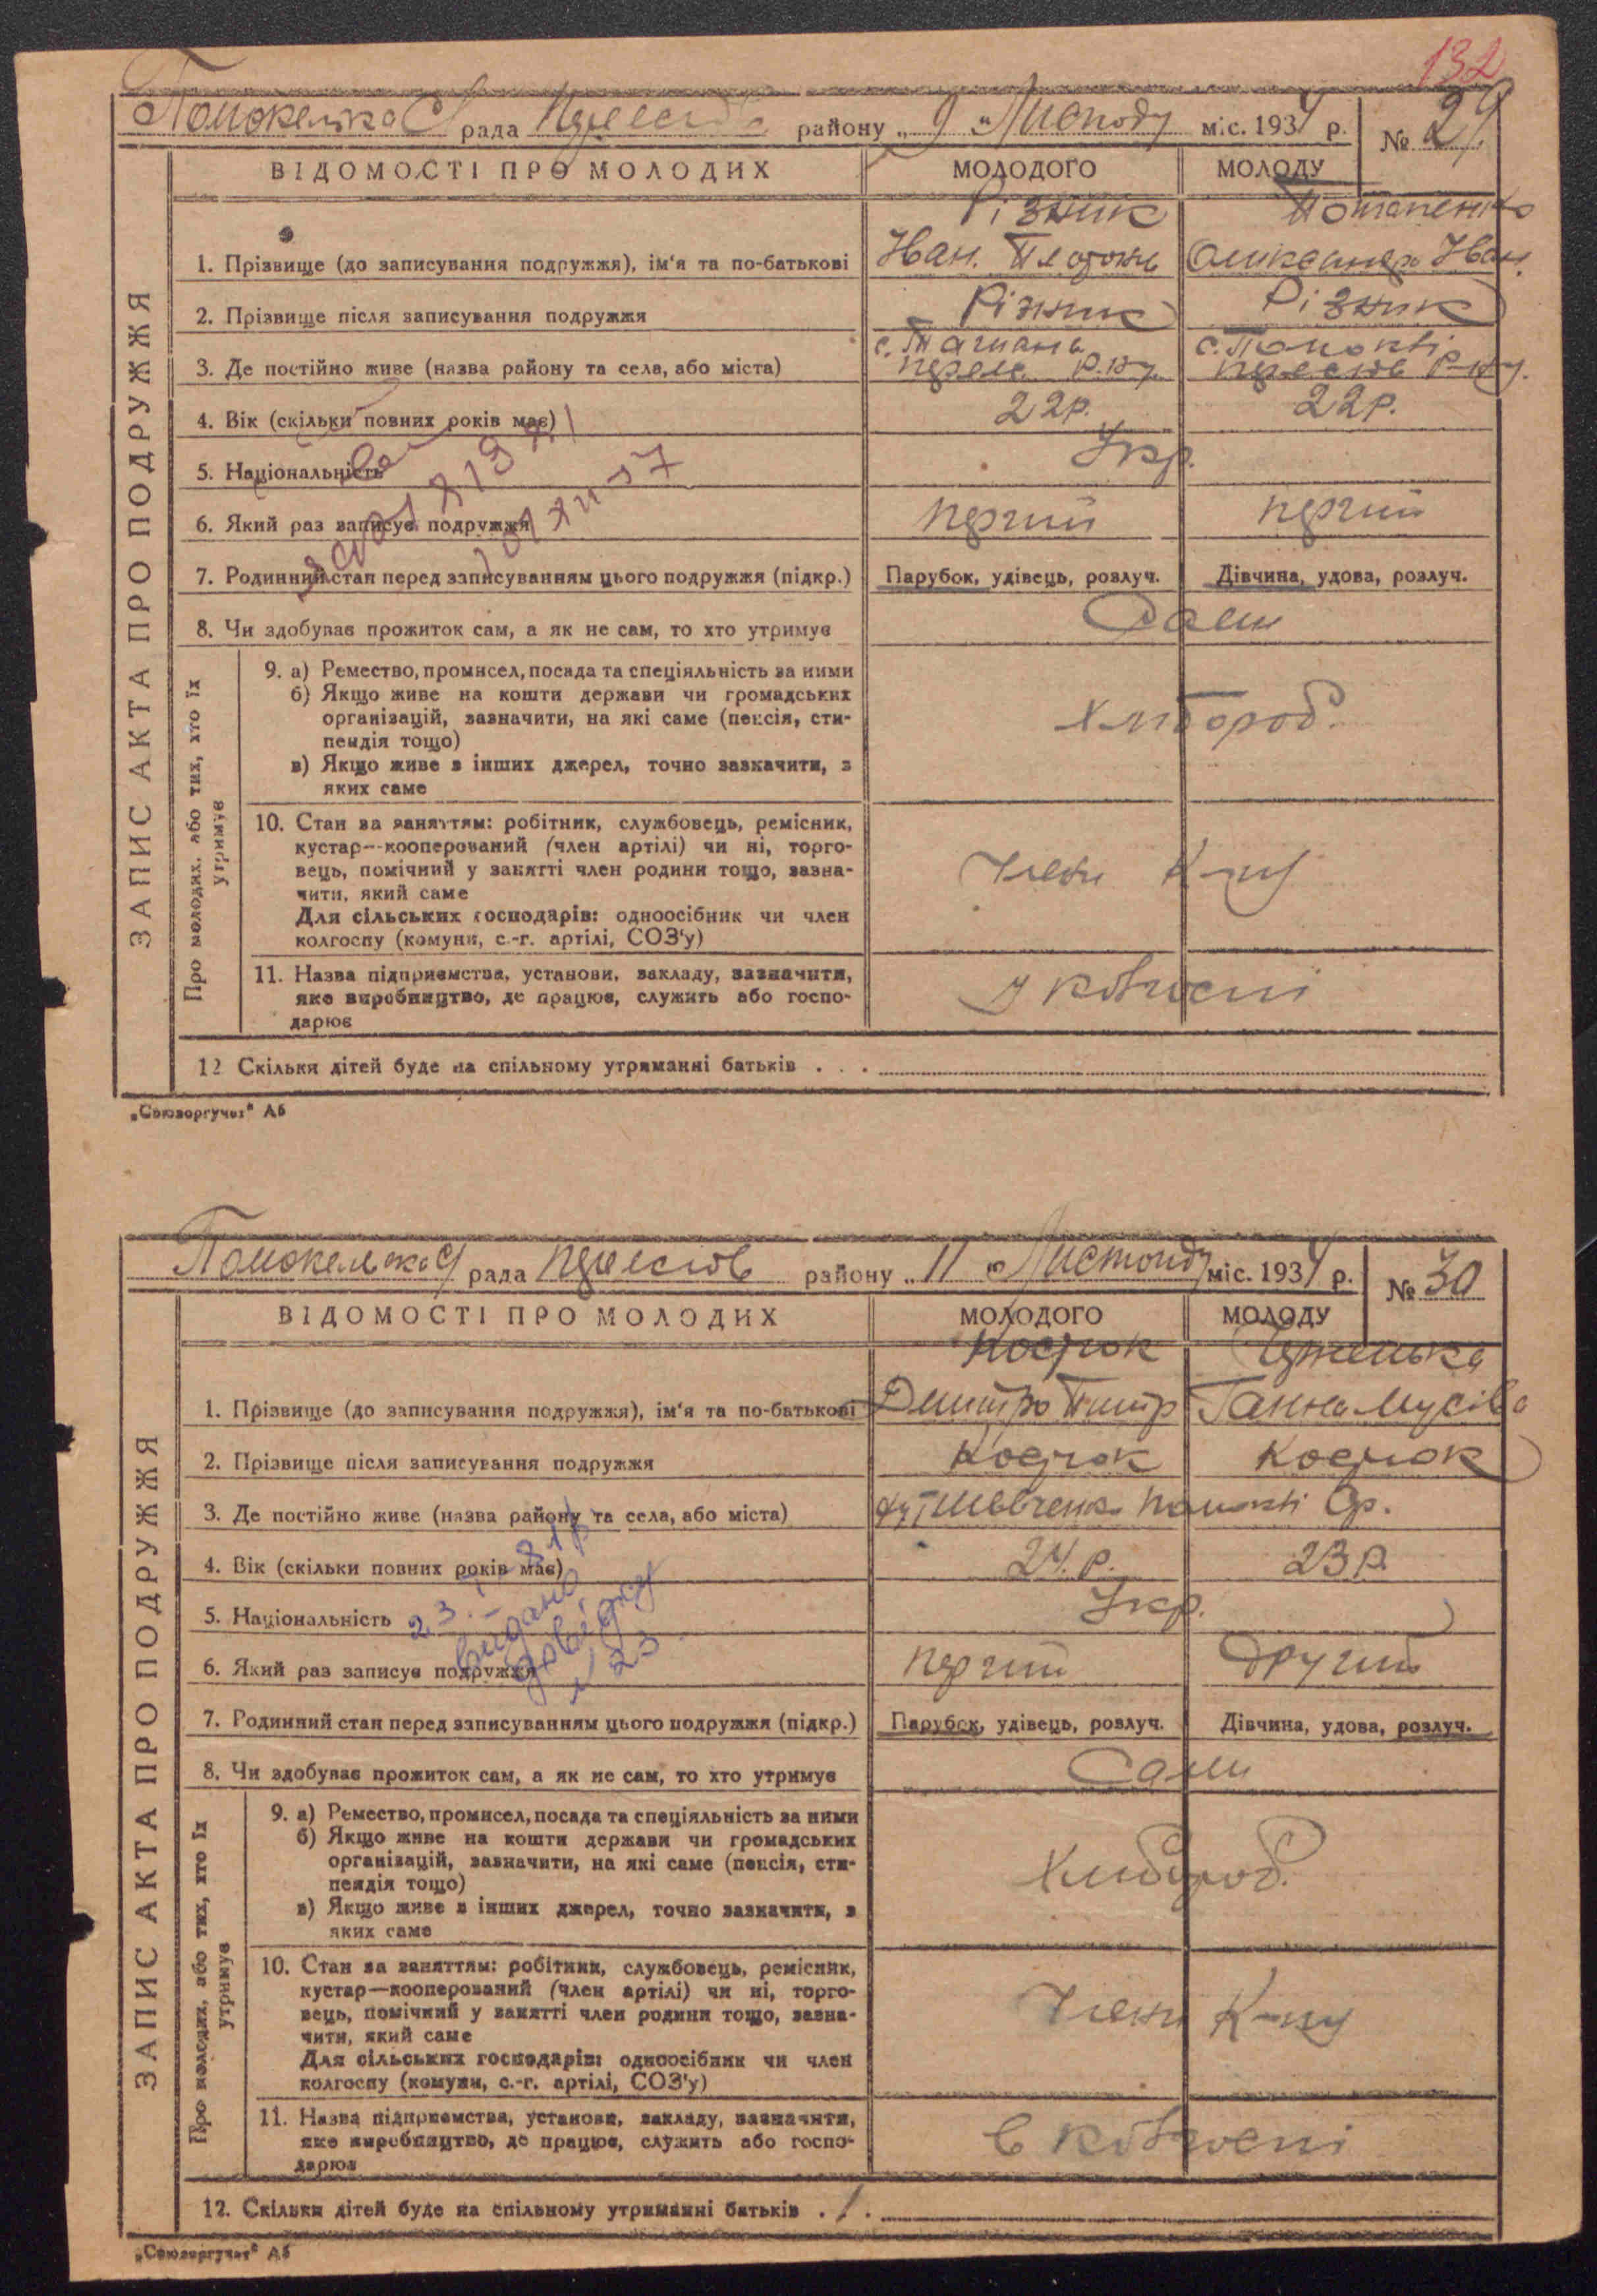 132
рада району „ 9 " Листоп міс. 1934 р. № 29
ВІДОМОСТІ ПРО МОЛОДИХ МОЛОДОГО МОЛОДУ
Різник Потапенко
1. Прізвище (до записування подружжя), ім'я та по-батькові Іван. Олександра Іван.
2. Прізвище після записування подружжя Різник Різник
3. Де постійно живе (назва району та села, або міста) с. с. Помоклі
4. Вік (скільки повних років має) 22р. 22р.
5. Національність Укр.
6. Який раз записує подружжя перший перший
7. Родинний стан перед записуванням цього подружжя (підкр.) Парубок, удівець, розлуч. Дівчина, удова, розлуч.
8. Чи здобуває прожиток сам, а як не сам, то хто утримує Сами
9. а) Ремество, промисел, посада та спеціяльність за ними
б) Якщо живе на кошти держави чи громадських
організацій, зазначити, на які саме (пенсія, сти-
пендія тощо)
в) Якщо живе з інших джерел, точно зазначити, з
яких саме
Хлібороб.
10. Стан за заняттям: робітник, службовець, ремісник,
кустар—кооперований (член артілі) чи ні, торго-
вець, помічний у занятті член родини тощо, зазна-
чити, який саме
Для сільських господарів: одноосібник чи член
колгоспу (комуни, с.-г. артілі, СОЗ'у)
Члени К-пу
11. Назва підприємства, установи, закладу, зазначити,
яке виробництво, де працює, служить або госпо-
дарює
у колгоспі
12 Скільки дітей буде на спільному утриманні батьків . . .
ЗАПИС АКТА ПРО ПОДРУЖЖЯ
Про молодих, або тих, хто їх
утримує
„Союзоргучет" А5
рада району „ 11 " Листопад міс. 1934 р. № 30
ВІДОМОСТІ ПРО МОЛОДИХ МОЛОДОГО МОЛОДУ
Костюк
1. Прізвище (до записування подружжя), ім'я та по-батькові Дмитро Ганна Мусіва
2. Прізвище після записування подружжя Костюк Костюк
3. Де постійно живе (назва району та села, або міста) Шевченка Помоклі
4. Вік (скільки повних років має) 24.р. 23р.
5. Національність Укр.
6. Який раз записує подружжя перший Другий
23. видано
довідку
№ 23
7. Родинний стан перед записуванням цього подружжя (підкр.) Парубок, удівець, розлуч. Дівчина, удова, розлуч.
8. Чи здобуває прожиток сам, а як не сам, то хто утримує Сами
9. а) Ремество, промисел, посада та спеціяльність за ними
б) Якщо живе на кошти держави чи громадських
організацій, зазначити, на які саме (пенсія, сти-
пендія тощо)
в) Якщо живе з інших джерел, точно зазначити, з
яких саме
Хлібороб.
10. Стан за заняттям: робітник, службовець, ремісник,
кустар—кооперований (член артілі) чи ні, торго-
вець, помічний у занятті член родини тощо, зазна-
чити, який саме
Для сільських господарів: одноосібник чи член
колгоспу (комуни, с.-г. артілі, СОЗ'у)
Члени К-пу
11. Назва підприємства, установи, закладу, зазначити,
яке виробництво, де працює, служить або госпо-
дарює
в колгоспі
12. Скільки дітей буде на спільному утриманні батьків . 1 .
ЗАПИС АКТА ПРО ПОДРУЖЖЯ
Про молодих, або тих, хто їх
утримує
„Союзоргучет" А5